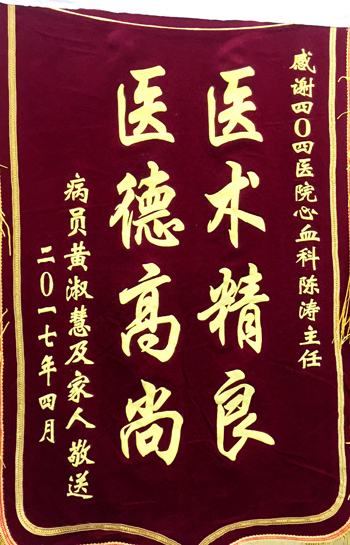 感谢四〇四医院心血科陈涛主任
医术精良
医德高尚
病员黄淑慧及家人敬送
二〇一七年四月